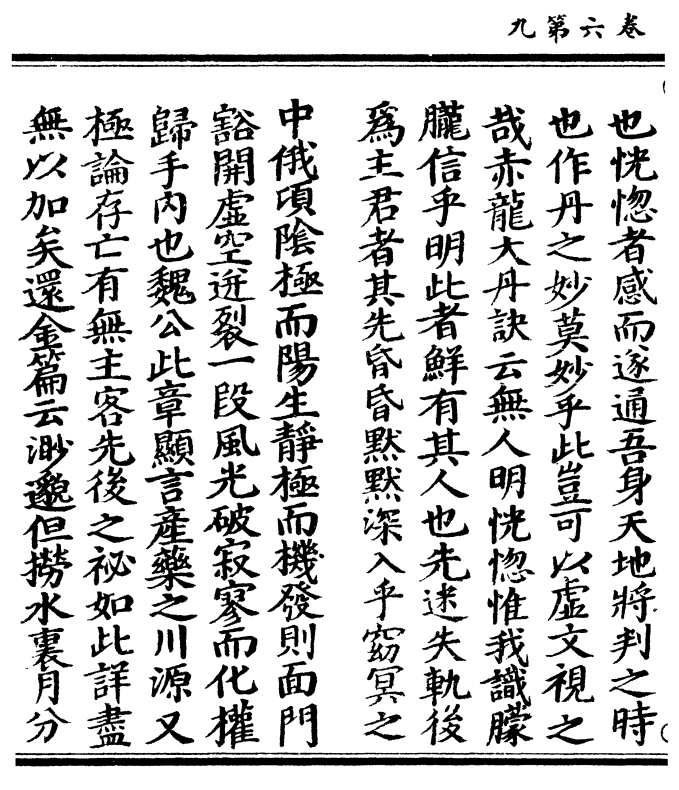 卷六第九
也恍惚者感而遂通吾身天地將判之時
也作丹之妙莫妙乎此豈可以虛文視之
哉赤龍大丹訣云無人明恍惚惟我識朦
朧信乎明此者鮮有其人也先迷失軌後
爲主君者其先昏昏默默深入乎窈冥之
中俄頃陰極而陽生靜極而機發則面門
豁開虛空迸裂一段風光破寂寥而化權
歸手內也魏公此章顯言產藥之川源又
極論存亡有無主客先後之祕如此詳盡
無以加矣還金篇云渺邈但撈水裏月分